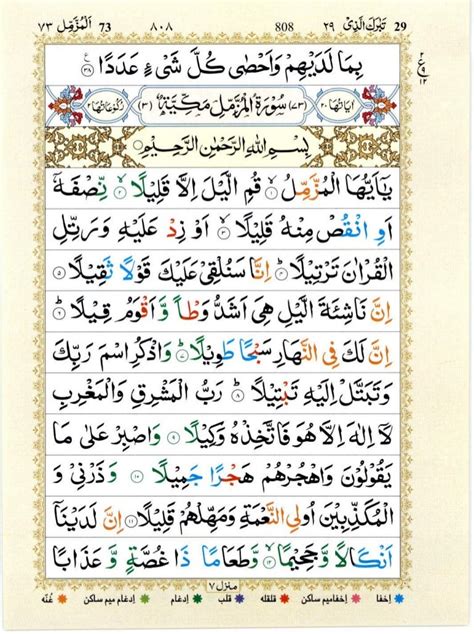 29 تَبٰرَكَ الَّذِىْ ٢٩ 808 ٨٠٨ 73 اَلْمُزَّمِّل ٧٣
بِمَا لَدَيْهِمْ وَاَحْصٰى كُلَّ شَىْءٍ عَدَدًا ۝٢٨
اٰيَاتُهَا ٢٠ (٧٣) سُوْرَةُ الْمُزَّمِّلِ مَكِّيَّةٌ (٣) رُكُوْعَاتُهَا ٢
بِسْمِ اللّٰهِ الرَّحْمٰنِ الرَّحِيْمِ
يٰۤاَيُّهَا الْمُزَّمِّلُ ۝١ قُمِ الَّيْلَ اِلَّا قَلِيْلًا ۝٢ نِّصْفَهٗۤ
اَوِ انْقُصْ مِنْهُ قَلِيْلًا ۝٣ اَوْ زِدْ عَلَيْهِ وَرَتِّلِ
الْقُرْاٰنَ تَرْتِيْلًا ۝٤ اِنَّا سَنُلْقِىْ عَلَيْكَ قَوْلًا ثَقِيْلًا ۝٥
اِنَّ نَاشِئَةَ الَّيْلِ هِىَ اَشَدُّ وَطْاً وَّاَقْوَمُ قِيْلًا ۝٦
اِنَّ لَكَ فِى النَّهَارِ سَبْحًا طَوِيْلًا ۝٧ وَاذْكُرِ اسْمَ رَبِّكَ
وَتَبَتَّلْ اِلَيْهِ تَبْتِيْلًا ۝٨ رَبُّ الْمَشْرِقِ وَالْمَغْرِبِ
لَاۤ اِلٰهَ اِلَّا هُوَ فَاتَّخِذْهُ وَكِيْلًا ۝٩ وَاصْبِرْ عَلٰى مَا
يَقُوْلُوْنَ وَاهْجُرْهُمْ هَجْرًا جَمِيْلًا ۝١٠ وَذَرْنِىْ وَ
الْمُكَذِّبِيْنَ اُولِى النَّعْمَةِ وَمَهِّلْهُمْ قَلِيْلًا ۝١١ اِنَّ لَدَيْنَاۤ
اَنْكَالًا وَّجَحِيْمًا ۝١٢ وَّطَعَامًا ذَا غُصَّةٍ وَّعَذَابًا
منزل ٧
اخفا اخفامیم ساکن قلقلہ قلب ادغام ادغام میم ساکن غُنّه